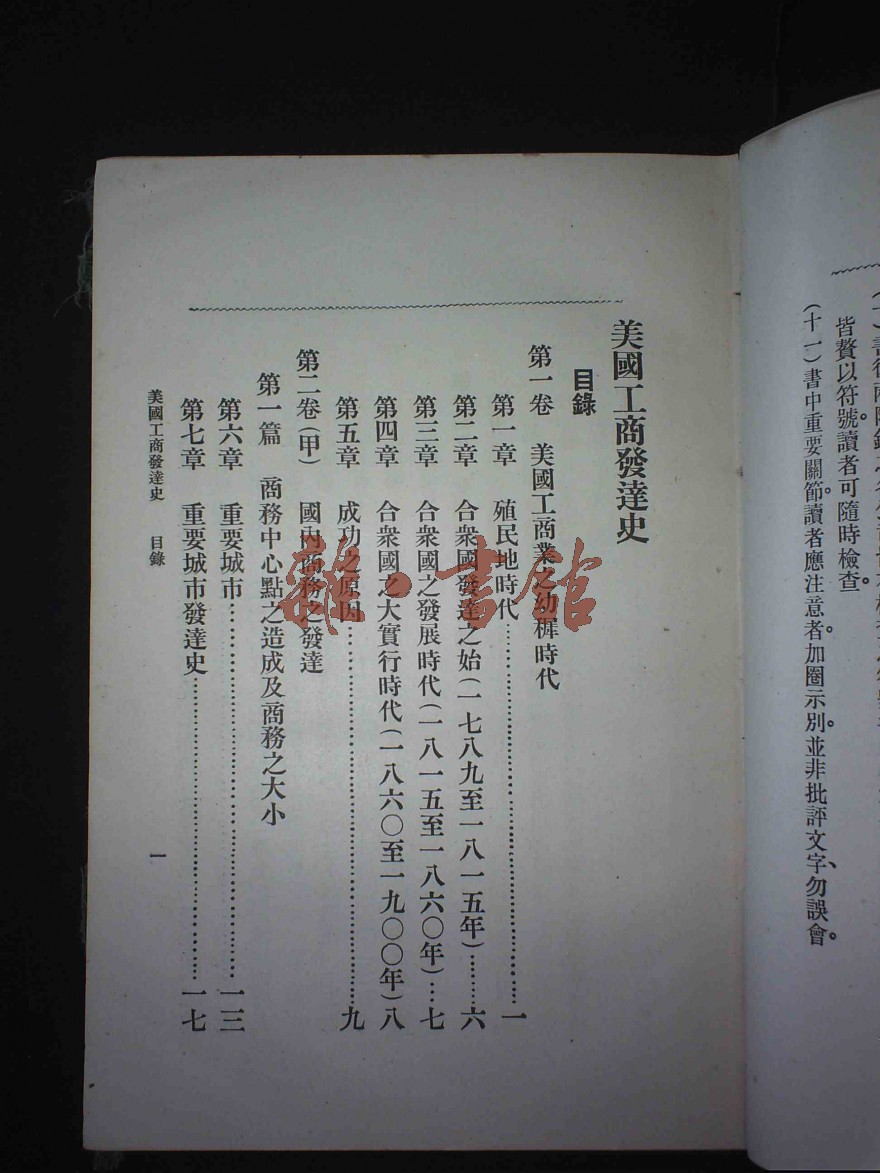 皆贅以符號。讀者可隨時檢查。
(十一)書中重要關節。讀者應注意者。加圈示別。並非批評文字、勿誤會。
美國工商發達史
目錄
第一卷 美國工商業之幼穉時代
第一章 殖民地時代……一
第二章 合衆國發達之始(一七八九至一八一五年)……六
第三章 合衆國之發展時代(一八一五至一八六〇年)…七
第四章 合衆國之大實行時代(一八六〇至一九〇〇年)八
第五章 成功之原因……九
第二卷(甲) 國內商務之發達
第一篇 商務中心點之造成及商務之大小
第六章 重要城市……一三
第七章 重要城市發達史……一七
美國工商發達史 目錄 一
雜·書館